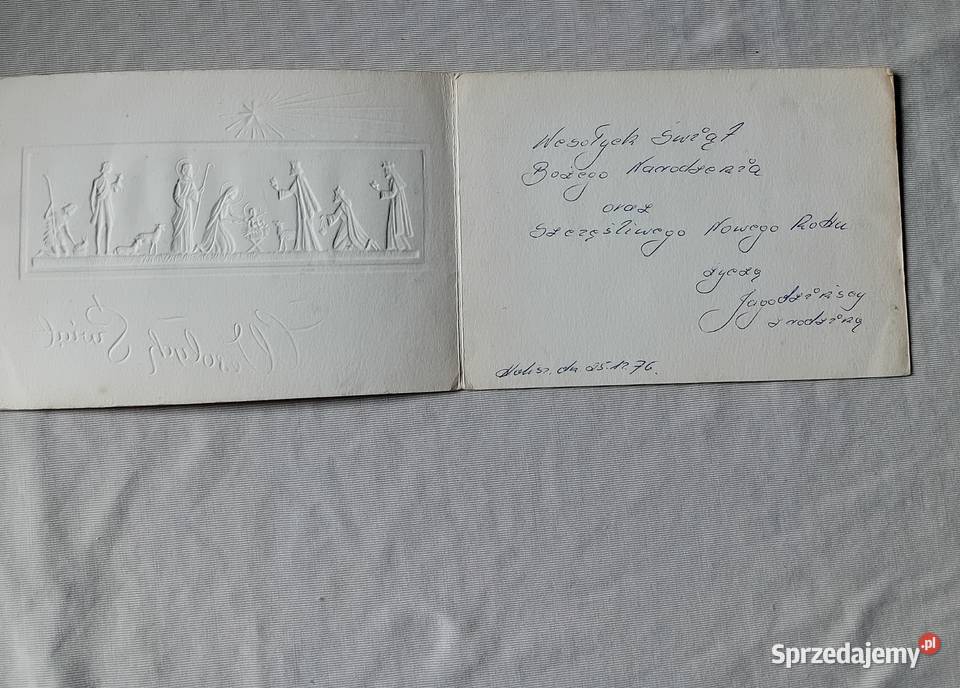 Wesołych Świąt
Wesołych Świąt
Bożego Narodzenia
oraz
Szczęśliwego Nowego Roku
życzą
Jagodzińscy
z rodziną
dn 25.12.76.
Sprzedajemy.pl